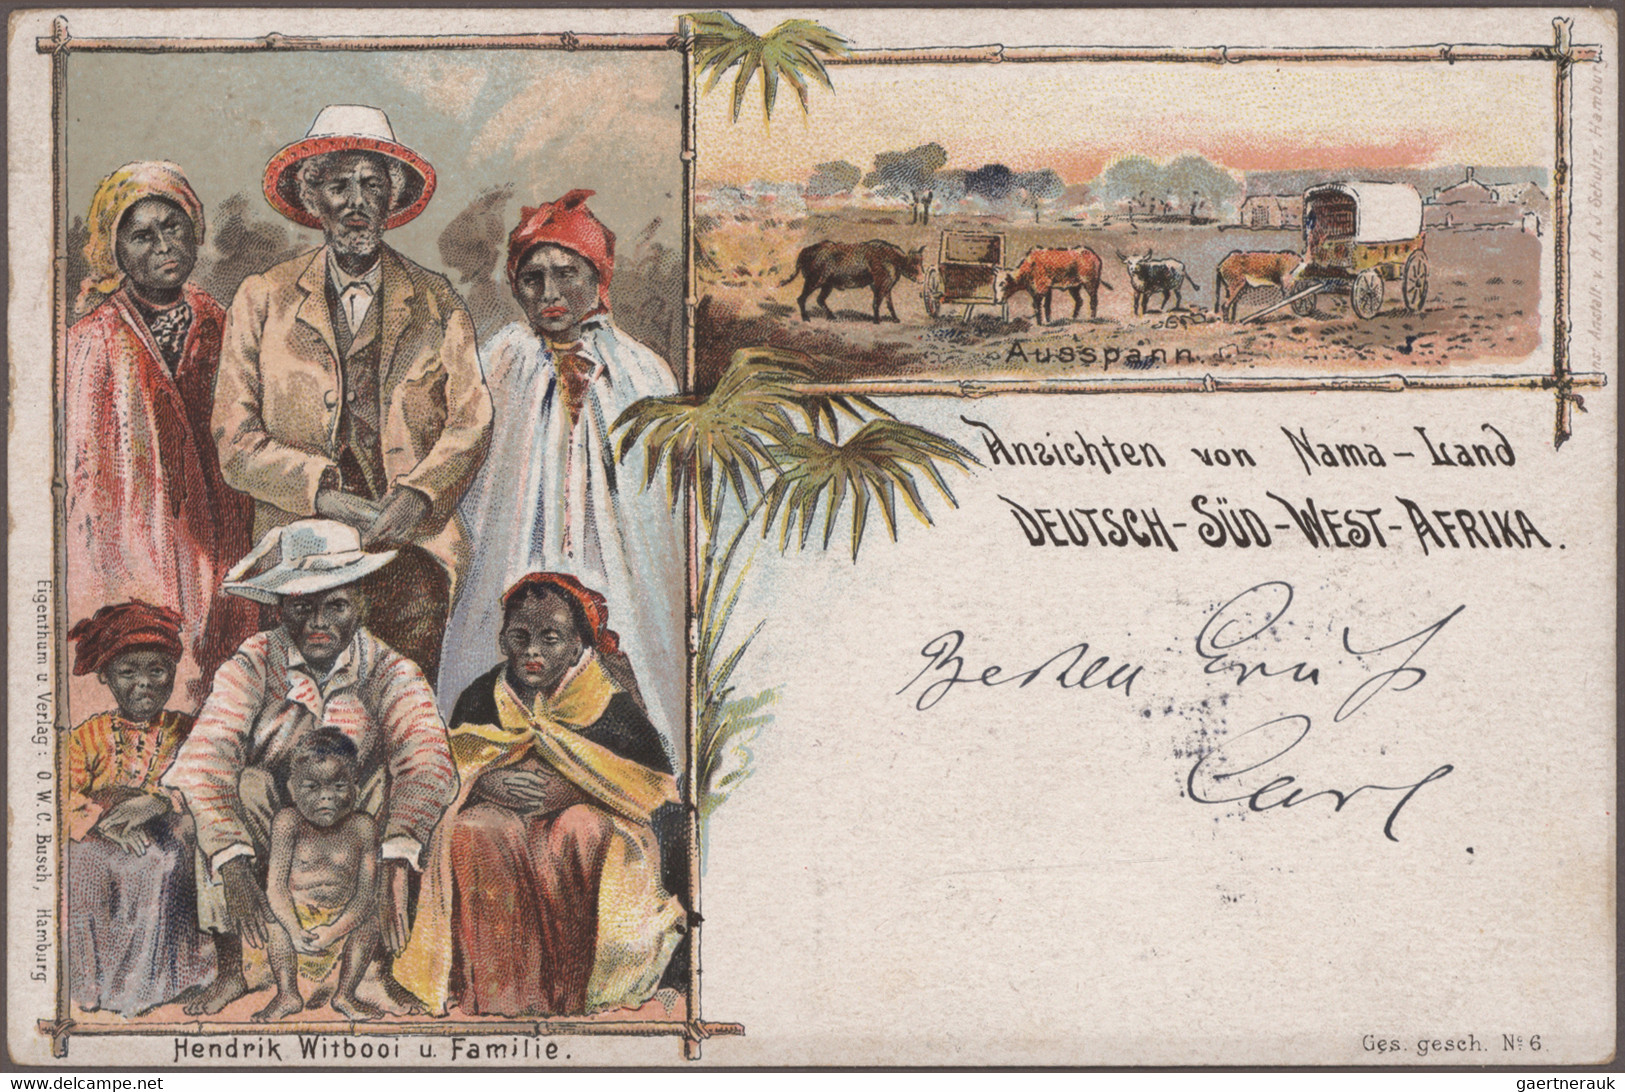 Ausspann.
Ansichten von Nama-Land
DEUTSCH-SÜD-WEST-AFRIKA.
Besten Gruß
Carl
Hendrik Witbooi u. Familie.
Eigenthum u. Verlag: O. W. C. Busch, Hamburg
Anstalt v. H. A. J. Schultz, Hamburg
Ges. gesch. No 6.
www.delcampe.net
gaertnerauk